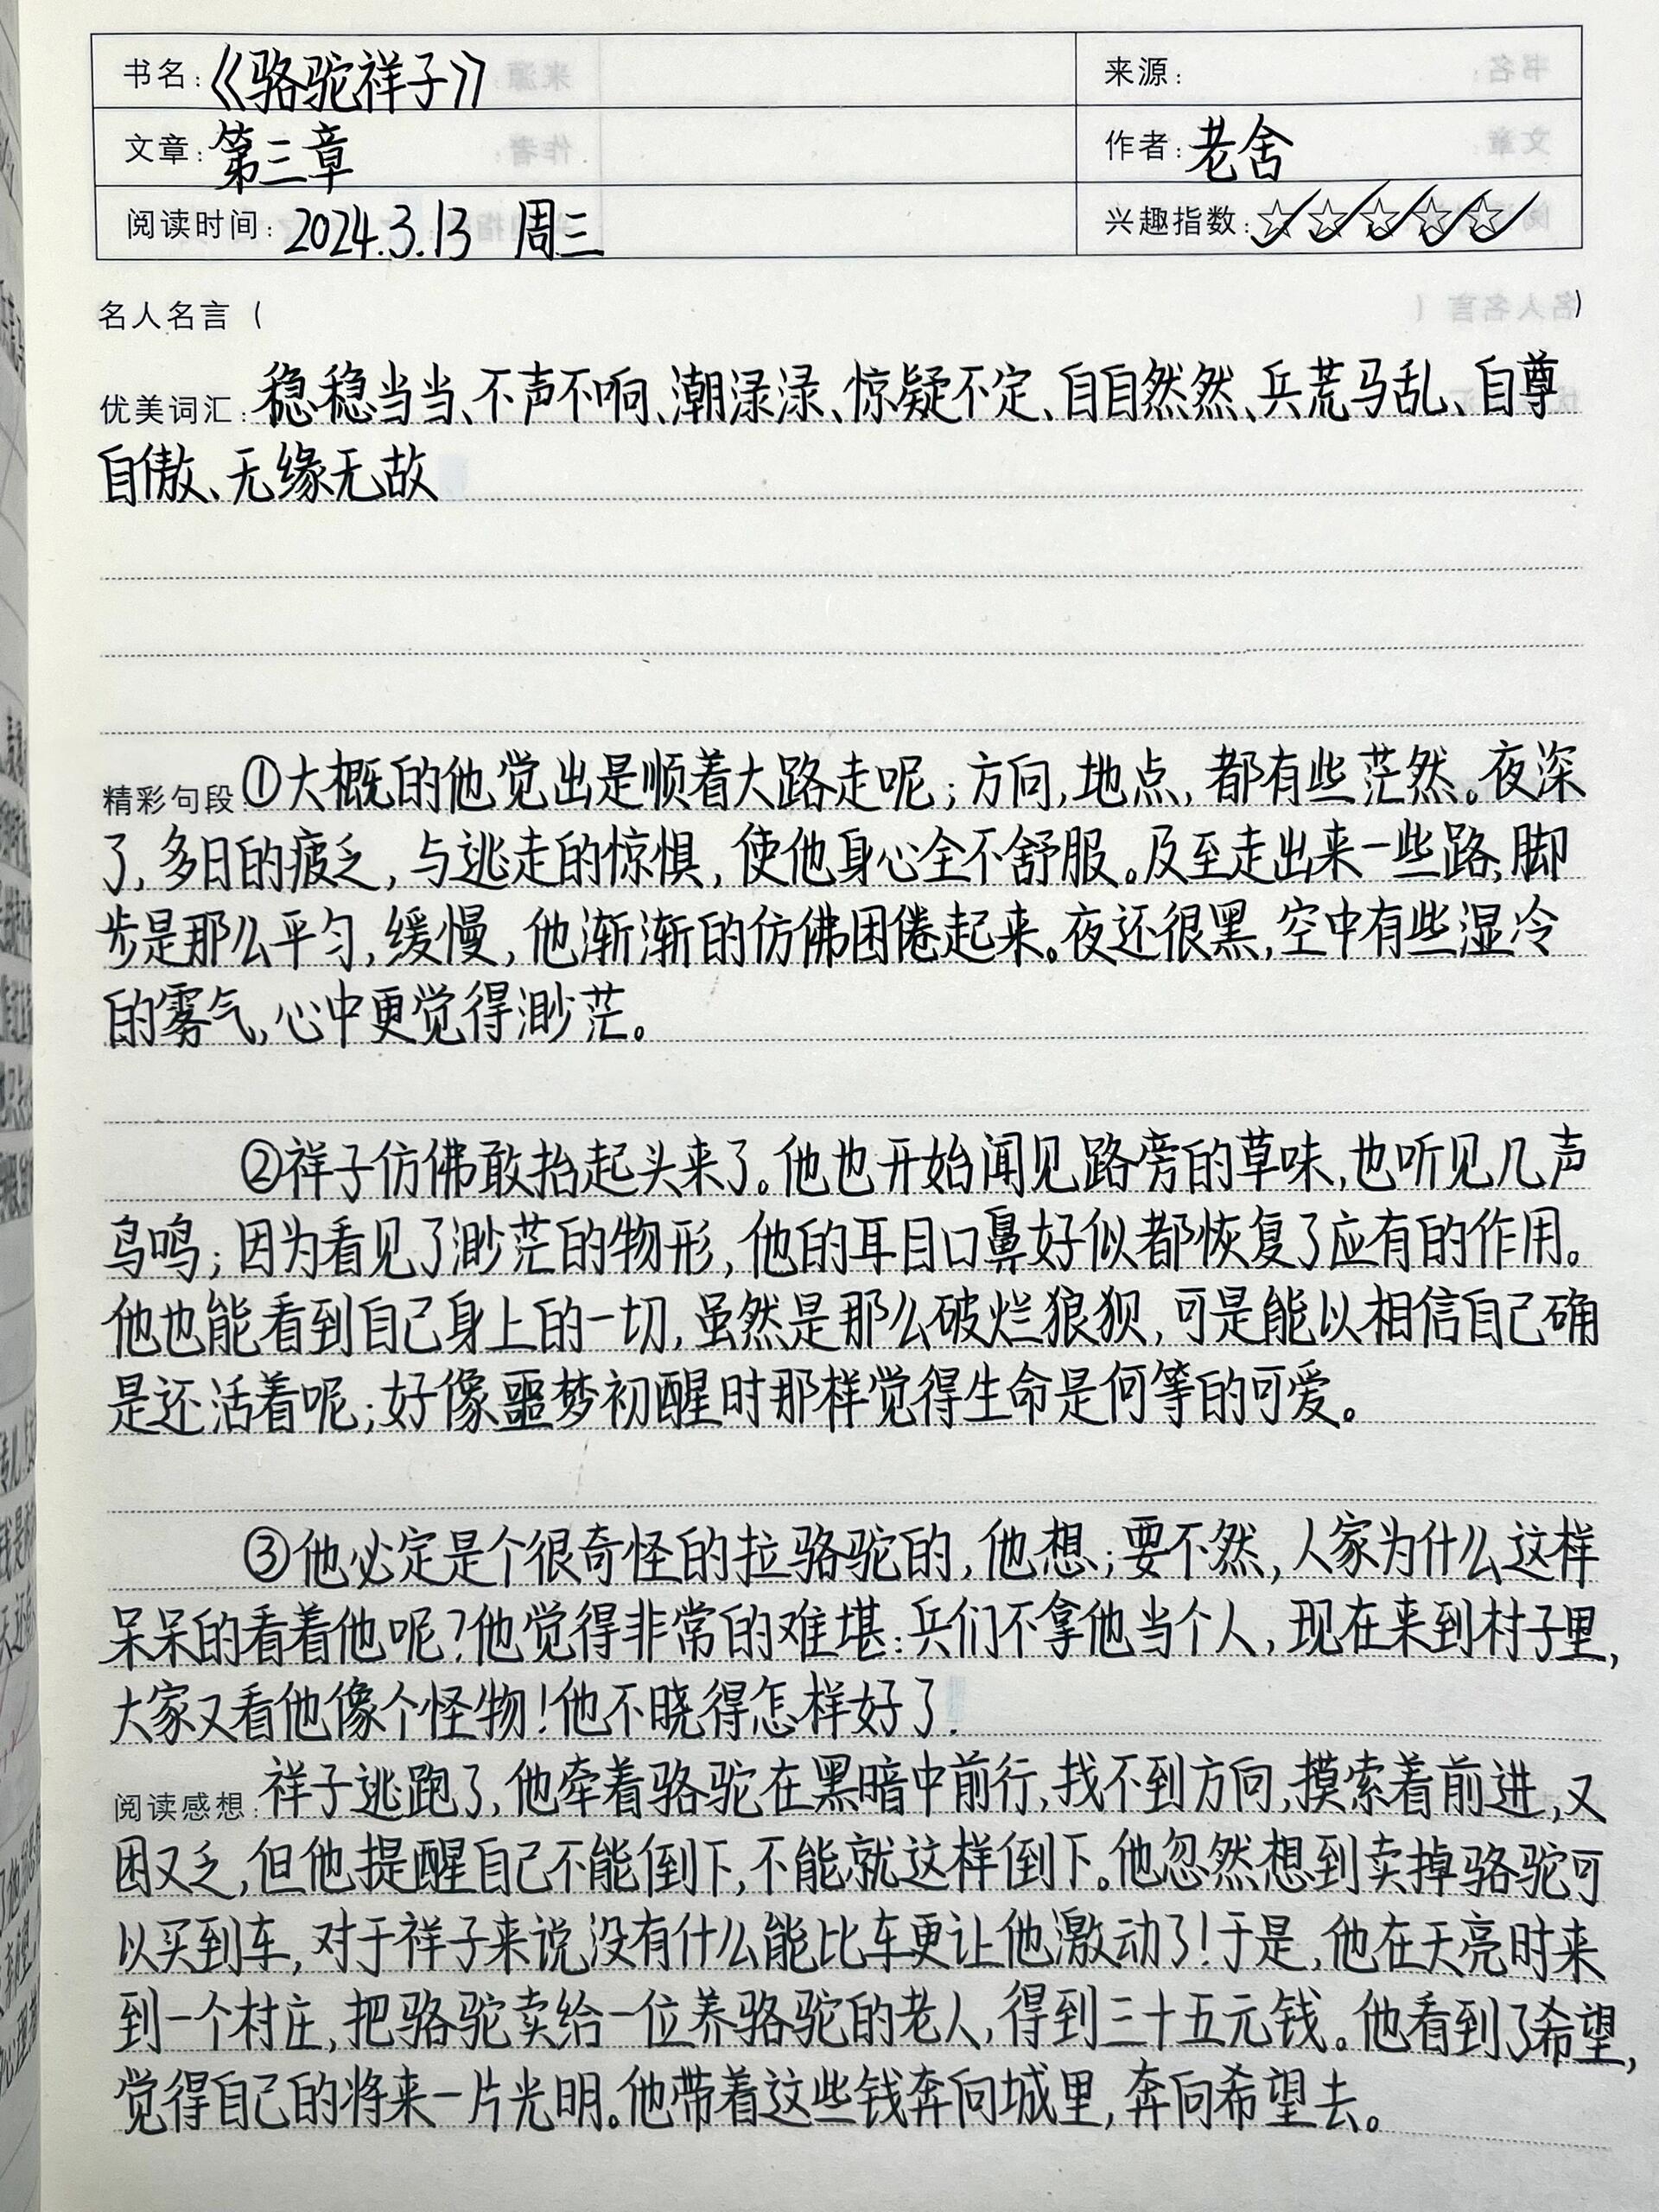 书名:《骆驼祥子》 来源:
文章:第三章 作者:老舍
阅读时间:2024.3.13 周三 兴趣指数:☆☆☆☆☆
名人名言( )
优美词汇:稳稳当当、不声不响、潮渌渌、惊疑不定、自自然然、兵荒马乱、自尊
自傲、无缘无故
精彩句段:①大概的他觉出是顺着大路走呢;方向,地点,都有些茫然。夜深
了,多日的疲乏,与逃走的惊惧,使他身心全不舒服。及至走出来一些路,脚
步是那么平匀,缓慢,他渐渐的仿佛困倦起来。夜还很黑,空中有些湿冷
的雾气,心中更觉得渺茫。
②祥子仿佛敢抬起头来了。他也开始闻见路旁的草味,也听见几声
鸟鸣;因为看见了渺茫的物形,他的耳目口鼻好似都恢复了应有的作用。
他也能看到自己身上的一切,虽然是那么破烂狼狈,可是能以相信自己确
是还活着呢;好像噩梦初醒时那样觉得生命是何等的可爱。
③他必定是个很奇怪的拉骆驼的,他想;要不然,人家为什么这样
呆呆的看着他呢?他觉得非常的难堪:兵们不拿他当个人,现在来到村子里,
大家又看他像个怪物!他不晓得怎样好了.
阅读感想:祥子逃跑了,他牵着骆驼在黑暗中前行,找不到方向,摸索着前进,又
困又乏,但他提醒自己不能倒下,不能就这样倒下。他忽然想到卖掉骆驼可
以买到车,对于祥子来说没有什么能比车更让他激动了!于是,他在天亮时来
到一个村庄,把骆驼卖给一位养骆驼的老人,得到三十五元钱。他看到了希望,
觉得自己的将来一片光明。他带着这些钱奔向城里,奔向希望去。